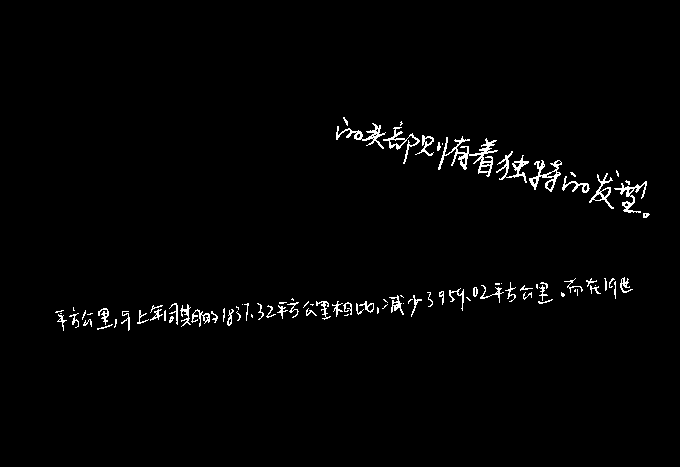 的头部则有着独特的发型。
平方公里,与上年同期的1837.32平方公里相比,减少3959.02平方公里。而在19世